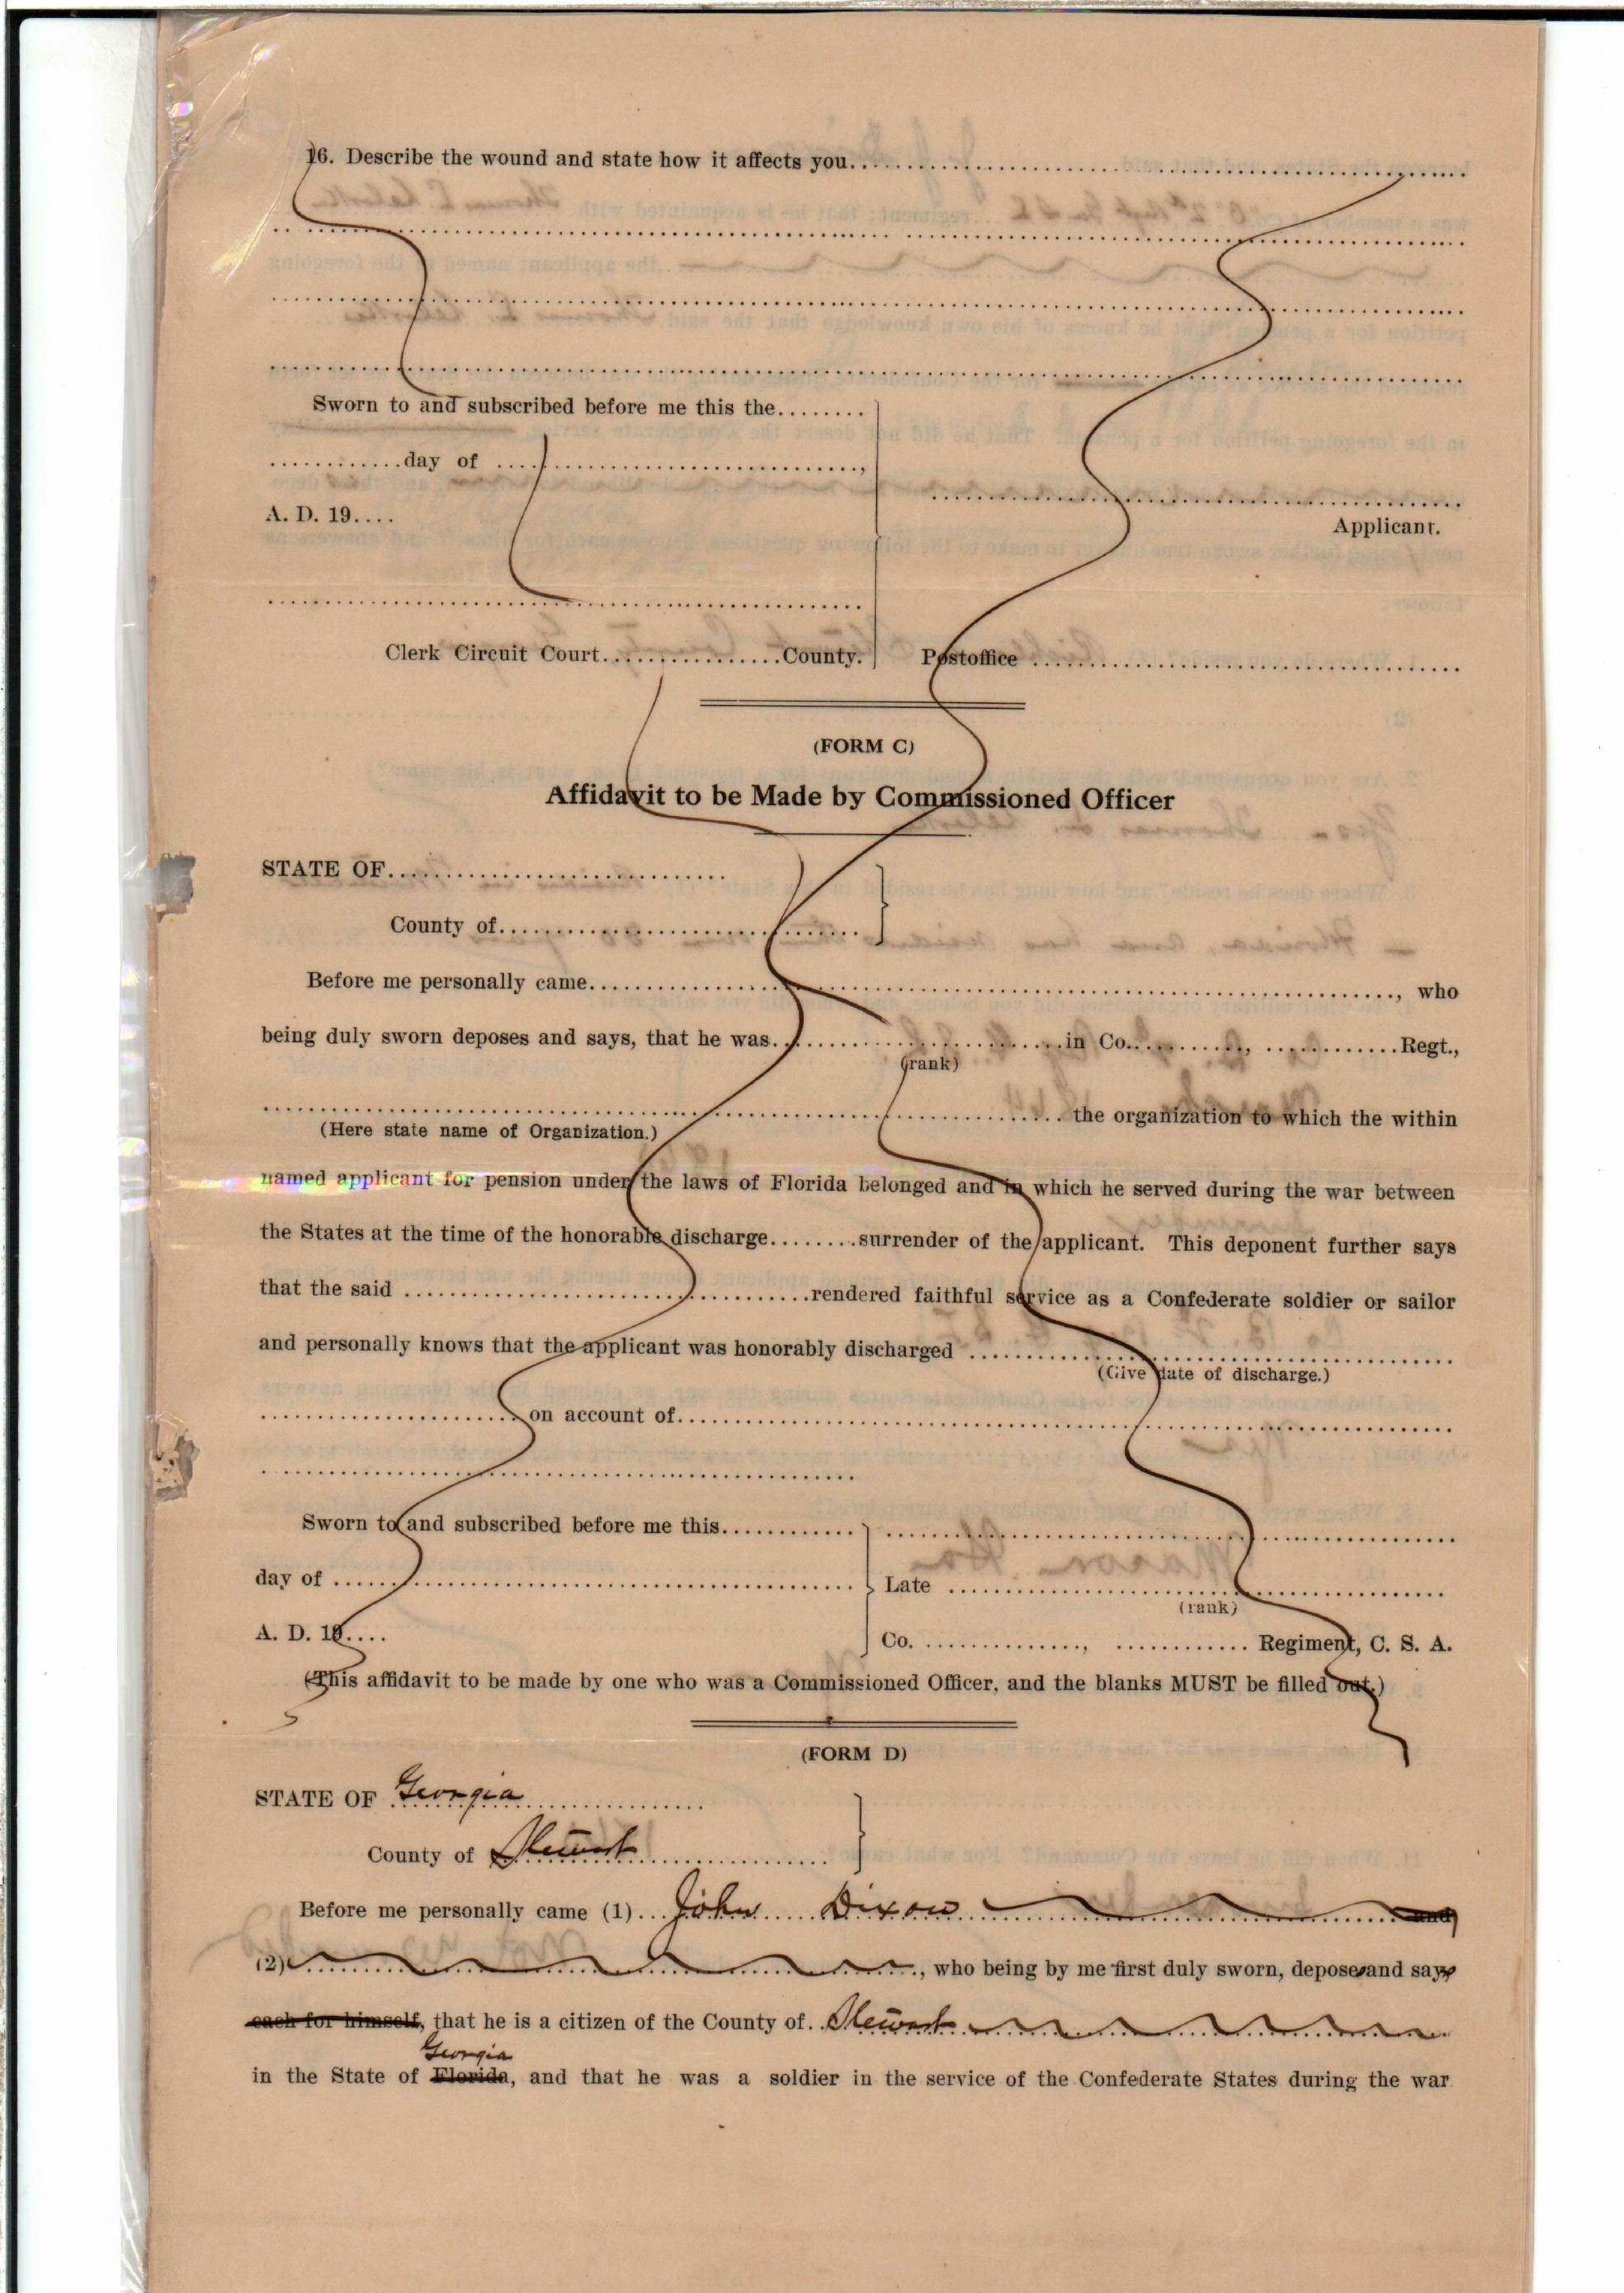 16. Describe the wound and state how it affects you........
Sworn to and subscribed before me this the........
............day of ........................,
A. D. 19....
Applicant.
Clerk Circuit Court................County.
Postoffice ........................
(FORM C)
Affidavit to be Made by Commissioned Officer
STATE OF........................
County of........................
Before me personally came........................, who
being duly sworn deposes and says, that he was........................in Co..........., ............Regt.,
(rank)
........................ the organization to which the within
(Here state name of Organization.)
named applicant for pension under the laws of Florida belonged and in which he served during the war between
the States at the time of the honorable discharge........surrender of the applicant. This deponent further says
that the said ........................rendered faithful service as a Confederate soldier or sailor
and personally knows that the applicant was honorably discharged ........................
(Give date of discharge.)
........................on account of........................
Sworn to and subscribed before me this............
day of ........................
Late ........................
(rank)
A. D. 19....
Co. ..............., ............ Regiment, C. S. A.
(This affidavit to be made by one who was a Commissioned Officer, and the blanks MUST be filled out.)
(FORM D)
STATE OF Georgia
County of Stewart
Before me personally came (1)...John Dixon and
(2)........................, who being by me first duly sworn, deposes and says
each for himself, that he is a citizen of the County of. Stewart
Georgia
in the State of Florida, and that he was a soldier in the service of the Confederate States during the war